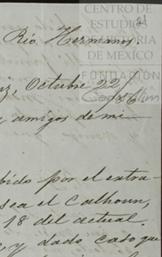 CENTRO DE
ESTUDIOS
DE MEXICO
FUNDACIÓN
Rio Hermanos.
Octubre 22/86
y amigos de mi
bido por el extra-
sea el Calhoun,
18 del actual,
y dado caso que